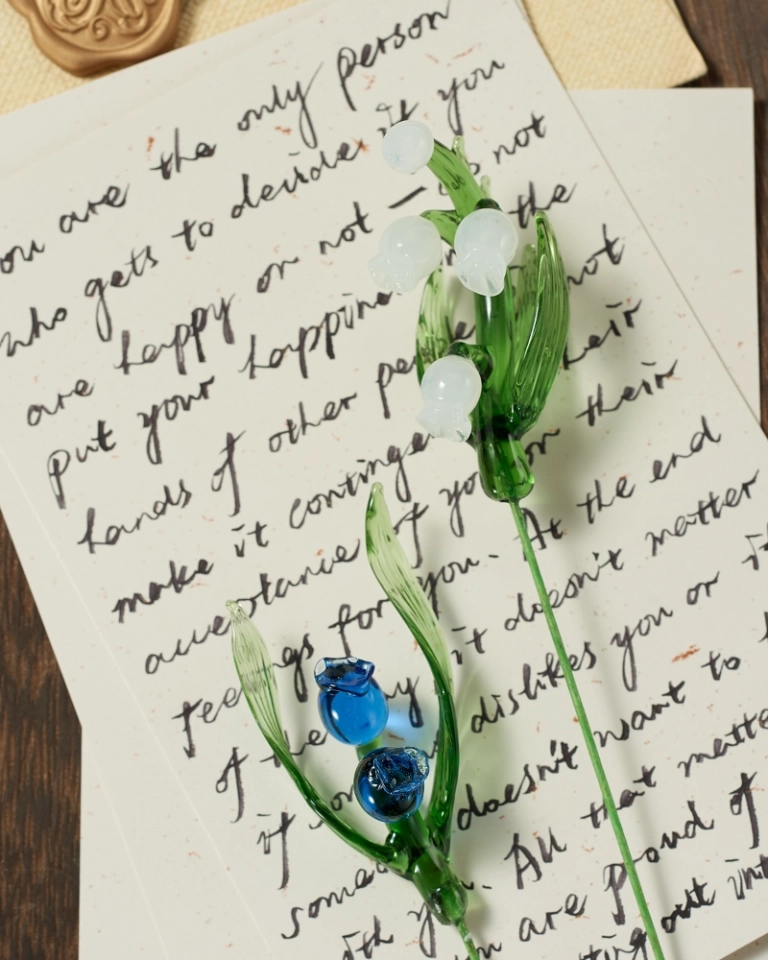 ou are the only person
who gets to decide if you
are happy or not — do not
put your happine the
hands of other pe not
make it continge heir
acceptance of you or their
feelings for you. At the end
of the y it doesn't matter
if som dislikes you or if
some doesn't want to
ith y . All that matte
are proud of
ting out int